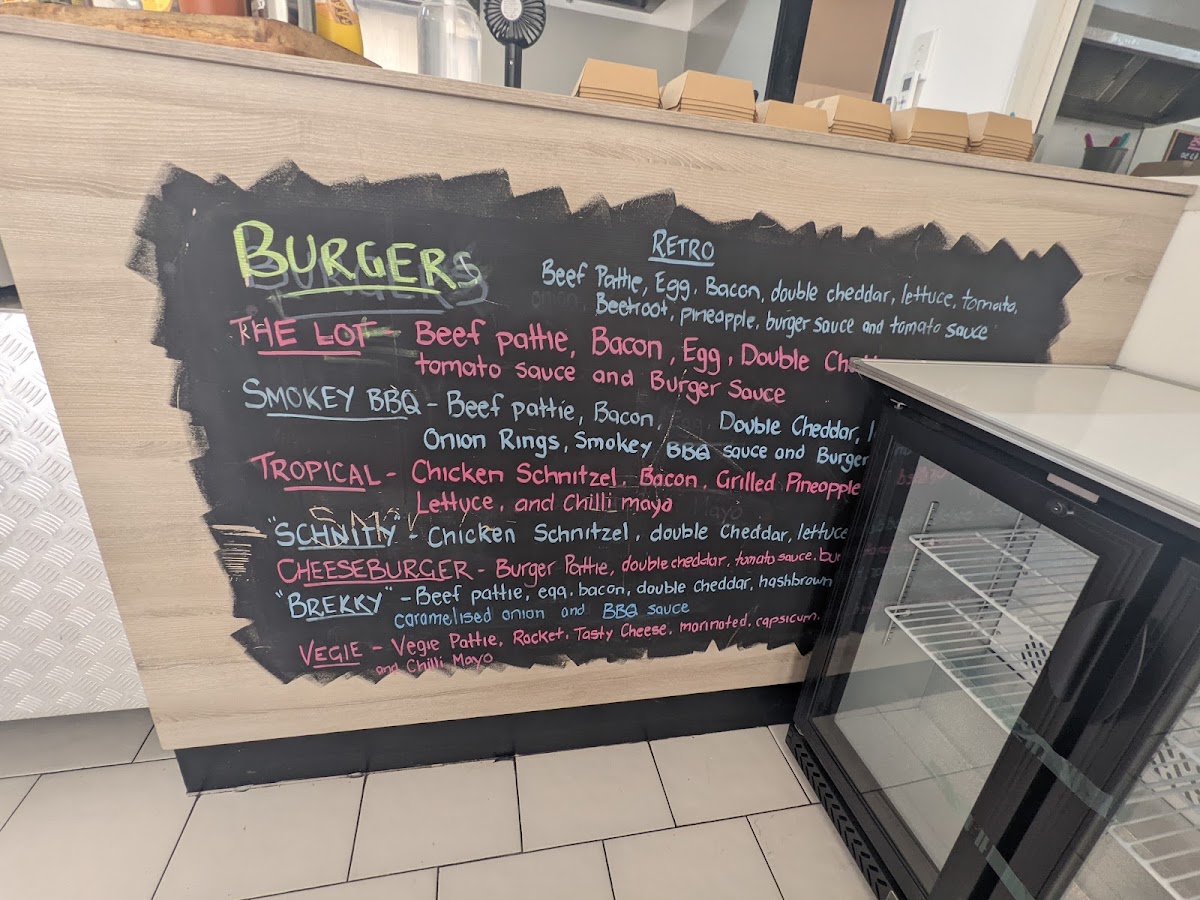 BURGERS
RETRO
Beef Pattie, Egg, Bacon, double cheddar, lettuce, tomato,
Beetroot, pineapple, burger sauce and tomato sauce
THE LOT - Beef pattie, Bacon, Egg, Double
tomato sauce and Burger Sauce
SMOKEY BBQ - Beef pattie, Bacon, Double Cheddar,
Onion Rings, Smokey BBQ sauce and Burger
TROPICAL - Chicken Schnitzel, Bacon, Grilled Pineapple
Lettuce, and Chilli mayo
"SCHNITTY" - Chicken Schnitzel, double Cheddar, lettuce
CHEESEBURGER - Burger Pattie, double cheddar, tomato sauce,
"BREKKY" - Beef pattie, egg, bacon, double cheddar, hashbrown
caramelised onion and BBQ sauce
VEGIE - Vegie Pattie, Rocket, Tasty Cheese, marinated, capsicum,
and Chilli Mayo